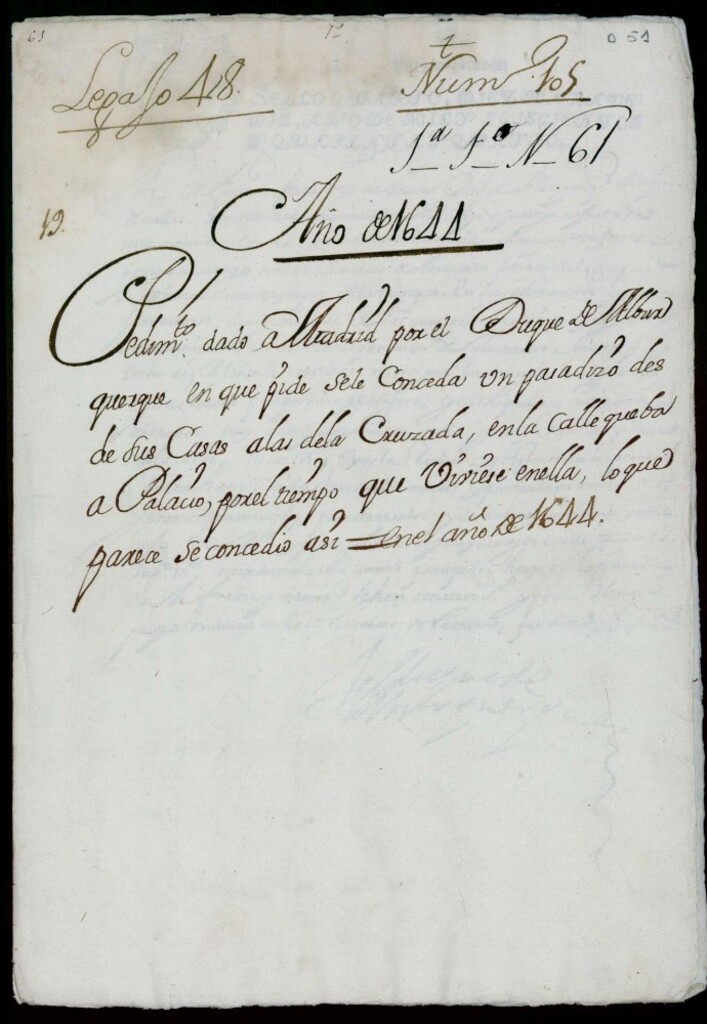 61
D 51
Legajo 48.
Num 105
1ª 1º N 61
19.
Año de 1644
Pedimto. dado a Madrid por el Duque de Albur
querque en que pide sele Conceda un pasadizo des
de sus Casas a las dela Cruzada, en la calle que ba
a Palacio, por el tiempo que Viviese en ella, lo que
parece se concedio asi = en el año de 1644.